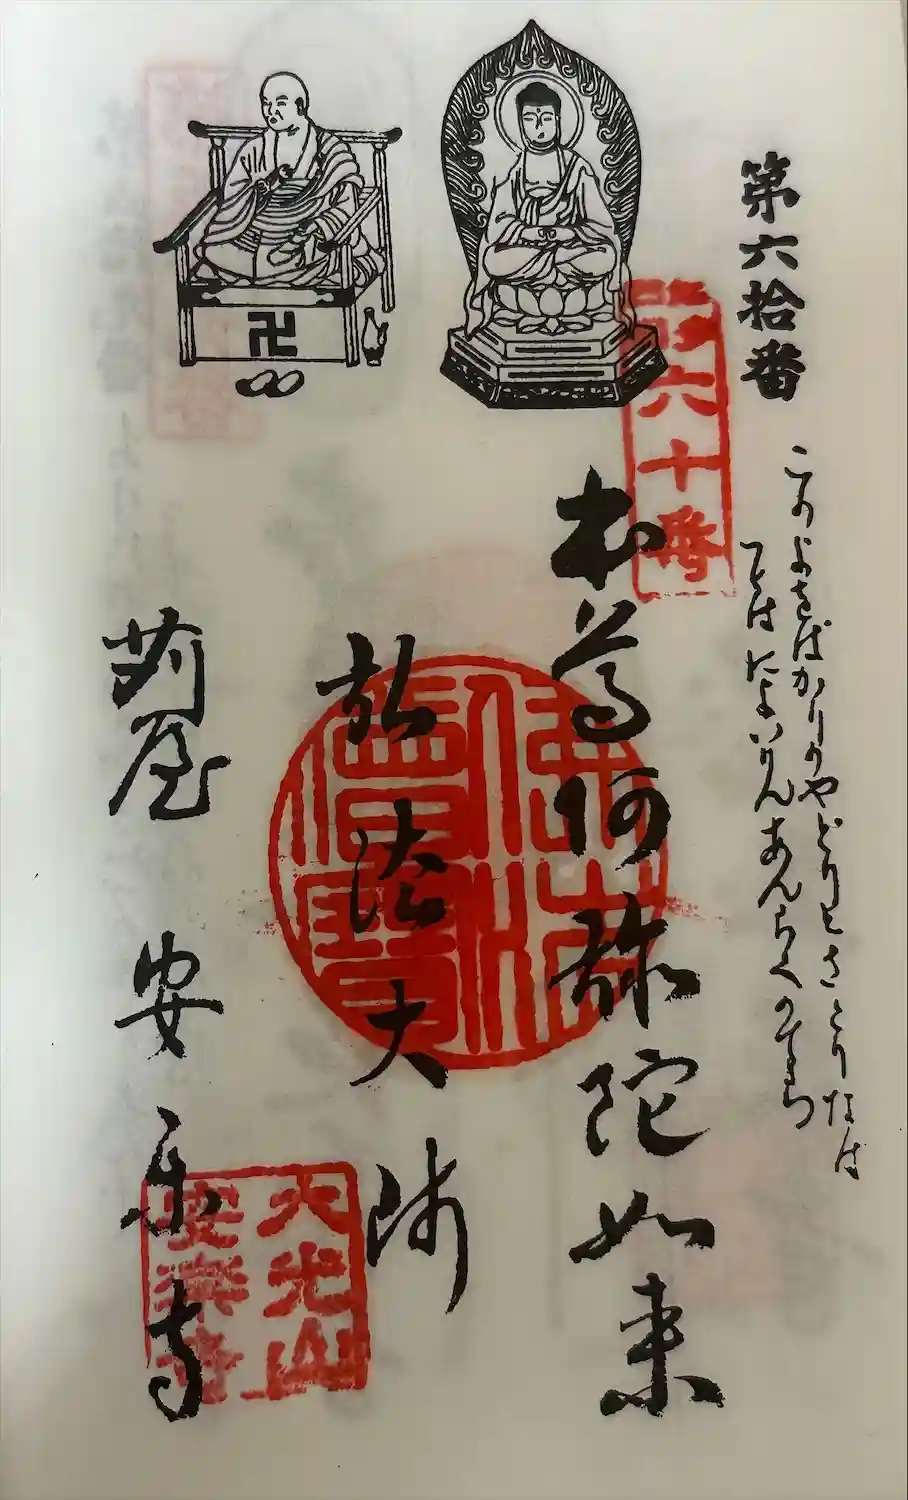 第六拾番
このよをばかりのやどりとさとりなば
によいりんあんらくの
第六十番
本尊阿弥陀如来
佛法僧寶
弘法大师
苅屋 安楽寺
大光山
安楽寺
卍